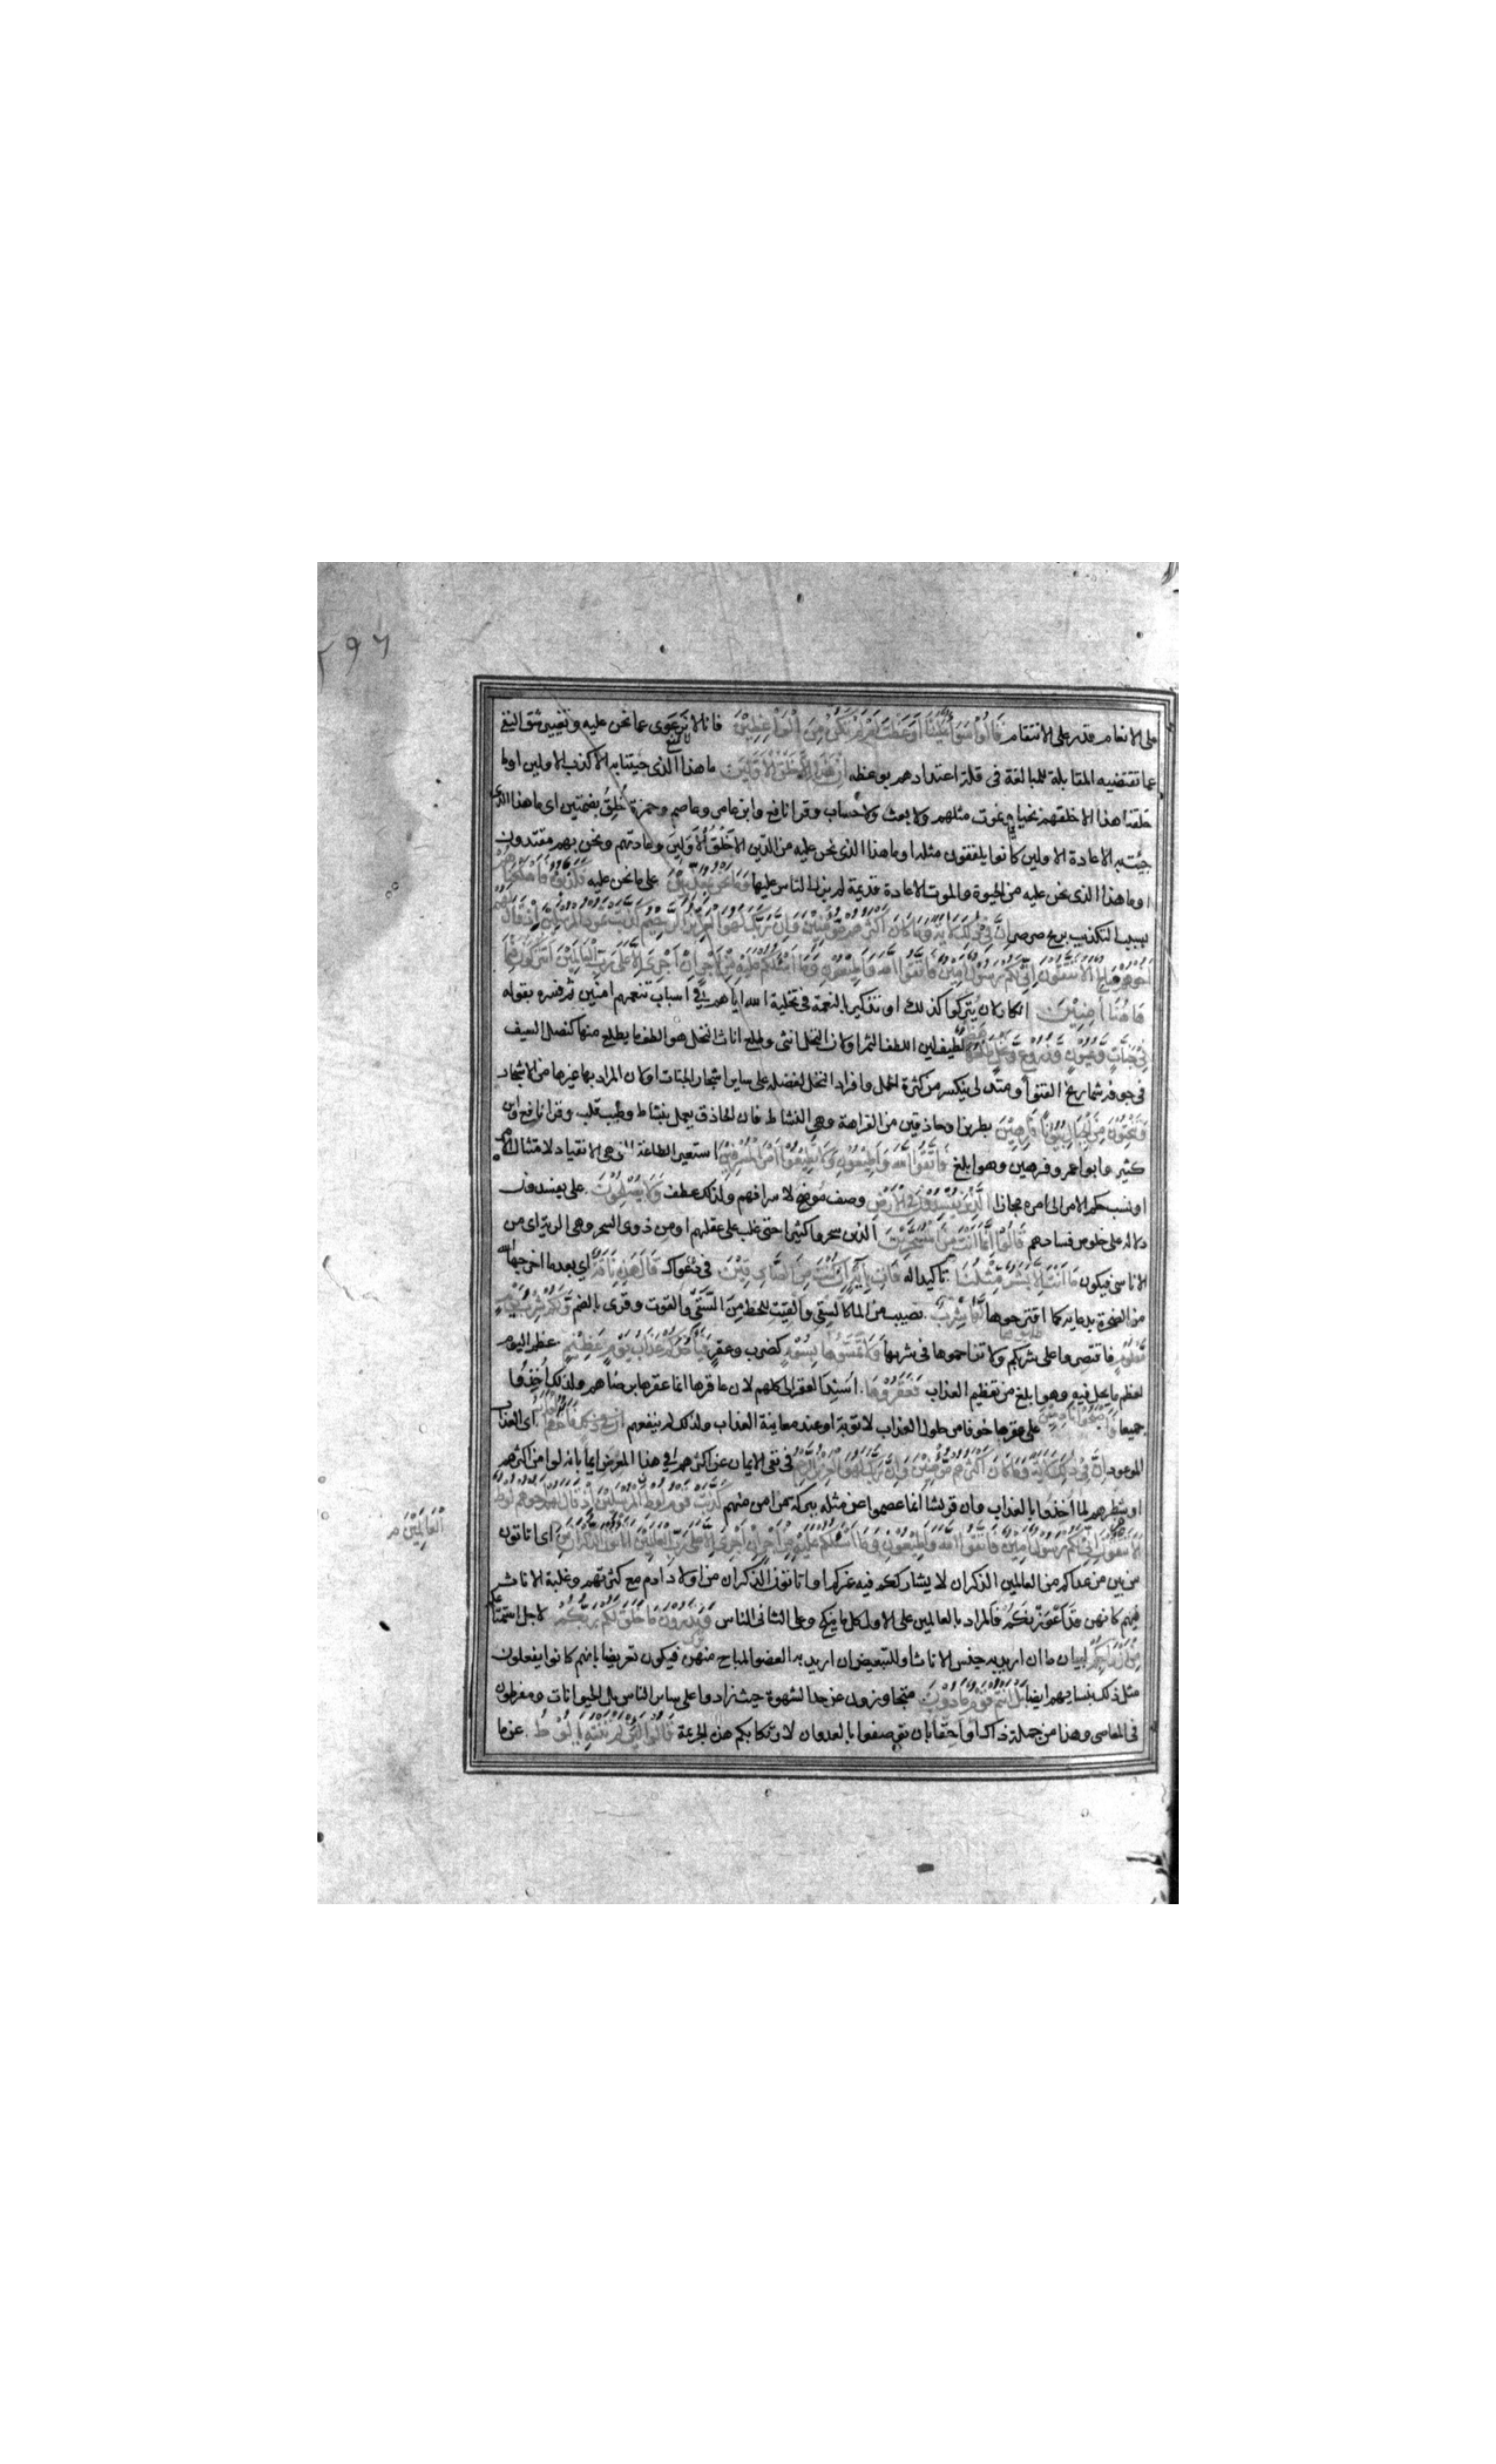 ٢٩٦
على الانعام قدر على الانتقام قَالُوا سَوَآءٌ عَلَيْنَآ أَوَعَظْتَ أَمْ لَمْ تَكُنْ مِنَ الْوَاعِظِيْنَ فانا لا نرعوى عما نحن عليه وتغيير شق النفى
عما تقتضيه المقابلة للمبالغة فى قلة اعتدادهم بوعظه اِنْ هٰذَا اِلَّا خَلْقُ الْاَوَّلِيْنَ ما هذا الذى جيتنا به الا كذب الاولين او ما
خلقنا هذا الا خلقهم نحيا ونموت مثلهم ولا بعث ولا حساب وقرا نافع وابن عامر وعاصم وحمزة خُلُقُ بضمتين اى ما هذا الذى
جئت به الا عادة الاولين كانوا يلفقون مثله او ما هذا الذى نحن عليه من الدين الا خُلُقُ الاَوّلِينَ وعادتهم ونحن بهم مقتدون
او ما هذا الذى نحن عليه من الحيوة والموت الا عادة قديمة لم يزل الناس عليها وَمَا نَحْنُ بِمُعَذَّبِيْنَ على ما نحن عليه فَكَذَّبُوْهُ فَاَهْلَكْنَاهُمْ
بسبب التكذيب بريح صرصر اِنَّ فِيْ ذٰلِكَ لَاٰيَةً وَّمَا كَانَ اَكْثَرُهُمْ مُّؤْمِنِيْنَ وَاِنَّ رَبَّكَ لَهُوَ الْعَزِيْزُ الرَّحِيْمُ كَذَّبَتْ ثَمُوْدُ الْمُرْسَلِيْنَ اِذْ قَالَ لَهُمْ
اَخُوْهُمْ صَالِحٌ اَلَا تَتَّقُوْنَ اِنِّيْ لَكُمْ رَسُوْلٌ اَمِيْنٌ فَاتَّقُوا اللهَ وَاَطِيْعُوْنِ وَمَا اَسْئَلُكُمْ عَلَيْهِ مِنْ اَجْرٍ اِنْ اَجْرِيَ اِلَّا عَلٰى رَبِّ الْعَالَمِيْنَ اَتُتْرَكُوْنَ فِيْمَا
هٰهُنَا اٰمِنِيْنَ انكار لان يتركوا كذلك او تذكير بالنعمة فى تخلية الله اياهم فى اسباب تنعمهم امنين ثم فسره بقوله
فِيْ جَنَّاتٍ وَّعُيُوْنٍ وَّزُرُوْعٍ وَّنَخْلٍ طَلْعُهَا هَضِيْمٌ لطيف لين اللطف الثمر او لان النخل انثى وطلع اناث النخل هو الطف ما يطلع منها كنصل السيف
فى جوفه شماريخ القنو او متدلى ينكسر من كثرة الحمل وافراد النخل لفضله على ساير اشجار الجنات او لان المراد بها غيرها من الاشجار
وَتَنْحِتُوْنَ مِنَ الْجِبَالِ بُيُوْتًا فَارِهِيْنَ بطرين او حاذقين من الفراهة وهى النشاط فان الحاذق يعمل بنشاط وطيب قلب وقرا نافع وابن
كثير وابو عمرو فرهين وهو ابلغ فَاتَّقُوا اللهَ وَاَطِيْعُوْنِ وَلَا تُطِيْعُوْا اَمْرَ الْمُسْرِفِيْنَ استعير الطاعة التى هى الانقياد لامتثال الامر
او نسب حكم الامر الى امره مجازا الَّذِيْنَ يُفْسِدُوْنَ فِي الْاَرْضِ وصف موضح لاسرافهم ولذلك عطف وَلَا يُصْلِحُوْنَ على يفسدون
دلالة على خلوص فسادهم قَالُوْا اِنَّمَا اَنْتَ مِنَ الْمُسَحَّرِيْنَ الذين سحروا كثيرا حتى غلب على عقلهم او من ذوى السحر وهى الرية اى من
الاناسى فيكون مَا اَنْتَ اِلَّا بَشَرٌ مِّثْلُنَا تاكيدا له فَأْتِ بِاٰيَةٍ اِنْ كُنْتَ مِنَ الصَّادِقِيْنَ فى دعواك قَالَ هٰذِهِ نَاقَةٌ اى بعد ما اخرجها الله
من الصخرة بدعايه كما اقترحوها لَهَا شِرْبٌ نصيب من الماء كالسقى والقيت للحظ من السقى والقوت وقرى بالضم وَلَكُمْ شِرْبُ يَوْمٍ
مَّعْلُوْمٍ فاقتصروا على شربكم ولا تزاحموها فى شربها وَلَا تَمَسُّوْهَا بِسُوْءٍ كضرب وعقر فَيَأْخُذَكُمْ عَذَابُ يَوْمٍ عَظِيْمٍ عظم اليوم
لعظم ما يحل فيه وهو ابلغ من تعظيم العذاب فَعَقَرُوْهَا اسند العقر الى كلهم لان عاقرها انما عقرها برضاهم ولذلك اُخِذُوا
جميعا فَاَصْبَحُوْا نَادِمِيْنَ على عقرها خوفا من حلول العذاب لا توبة او عند معاينة العذاب ولذلك لم ينفعهم فَاَخَذَهُمُ الْعَذَابُ اى العذاب
الموعود اِنَّ فِيْ ذٰلِكَ لَاٰيَةً وَّمَا كَانَ اَكْثَرُهُمْ مُّؤْمِنِيْنَ وَاِنَّ رَبَّكَ لَهُوَ الْعَزِيْزُ الرَّحِيْمُ فى نفى الايمان عن اكثرهم فى هذا المعرض ايماء بانه لو امن اكثرهم
او شطرهم لما اخذوا بالعذاب وان قريشا انما عصموا عن مثله ببركة من امن منهم كَذَّبَتْ قَوْمُ لُوْطٍ الْمُرْسَلِيْنَ اِذْ قَالَ لَهُمْ اَخُوْهُمْ لُوْطٌ
اَلَا تَتَّقُوْنَ اِنِّيْ لَكُمْ رَسُوْلٌ اَمِيْنٌ فَاتَّقُوا اللهَ وَاَطِيْعُوْنِ وَمَا اَسْئَلُكُمْ عَلَيْهِ مِنْ اَجْرٍ اِنْ اَجْرِيَ اِلَّا عَلٰى رَبِّ الْعَالَمِيْنَ اَتَأْتُوْنَ الذُّكْرَانَ مِنَ اى اتاتون
الْعَالَمِيْنَ م
من بين من عداكم من العالمين الذكران لا يشارككم فيه غيركم او اتاتون الذكران من اولاد ادم مع كثرتهم وغلبة الاناث
فيهم كانهن قد اعوزنكم فالمراد بالعالمين على الاول كل ما ينكح وعلى الثانى الناس وَتَذَرُوْنَ مَا خَلَقَ لَكُمْ رَبُّكُمْ لاجل استمتاعكم
مِنْ اَزْوَاجِكُمْ لبيان ما ان اريد به جنس الاناث او للتبعيض ان اريد به العضو المباح منهن فيكون تعريضا بانهم كانوا يفعلون
مثل ذلك بنسايهم ايضا بَلْ اَنْتُمْ قَوْمٌ عَادُوْنَ متجاوزون عن حد الشهوة حيث زادوا على ساير الناس بل الحيوانات او مفرطون
فى المعاصى وهذا من جملة ذاك او احقاء بان توصفوا بالعدوان لارتكابكم هذه الجريمة قَالُوْا لَئِنْ لَّمْ تَنْتَهِ يَا لُوْطُ عن ما